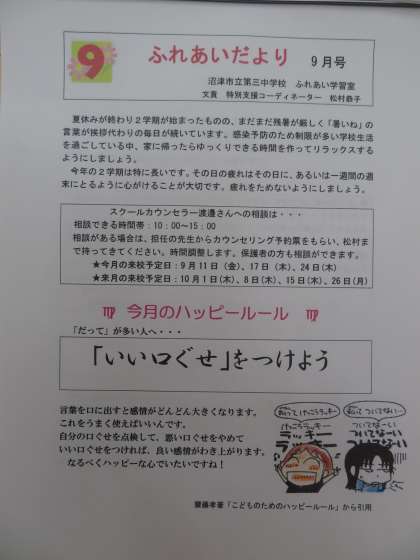 9
ふれあいだより 9月号
沼津市立第三中学校 ふれあい学習室
文責 特別支援コーディネーター 松村恭子
夏休みが終わり2学期が始まったものの、まだまだ残暑が厳しく「暑いね」の
言葉が挨拶代わりの毎日が続いています。感染予防のため制限が多い学校生活
を過ごしている中、家に帰ったらゆっくりできる時間を作ってリラックスする
ようにしましょう。
今年の2学期は特に長いです。その日の疲れはその日に、あるいは一週間の週
末にとるように心がけることが大切です。疲れをためないようにしましょう。
スクールカウンセラー渡邉さんへの相談は・・・
相談できる時間帯:10:00~15:00
相談がある場合は、担任の先生からカウンセリング予約票をもらい、松村ま
で持ってきてください。時間調整します。保護者の方も相談ができます。
★今月の来校予定日:9月11日(金)、17日(木)、24日(木)
★来月の来校予定日:10月1日(木)、8日(木)、15日(木)、26日(月)
♍ 今月のハッピールール ♍
「だって」が多い人へ・・・
「いい口ぐせ」をつけよう
言葉を口に出すと感情がどんどん大きくなります。
これをうまく使えばいいんです。
自分の口ぐせを点検して、悪い口ぐせをやめて
いい口ぐせをつければ、良い感情がわき上がります。
なるべくハッピーな心でいたいですね!
私って けっこうラッキー
けっこうラッキー
ラッキー
私って ついてない…
ついてなーい
ついてない
齋藤孝著「こどものためのハッピールール」から引用